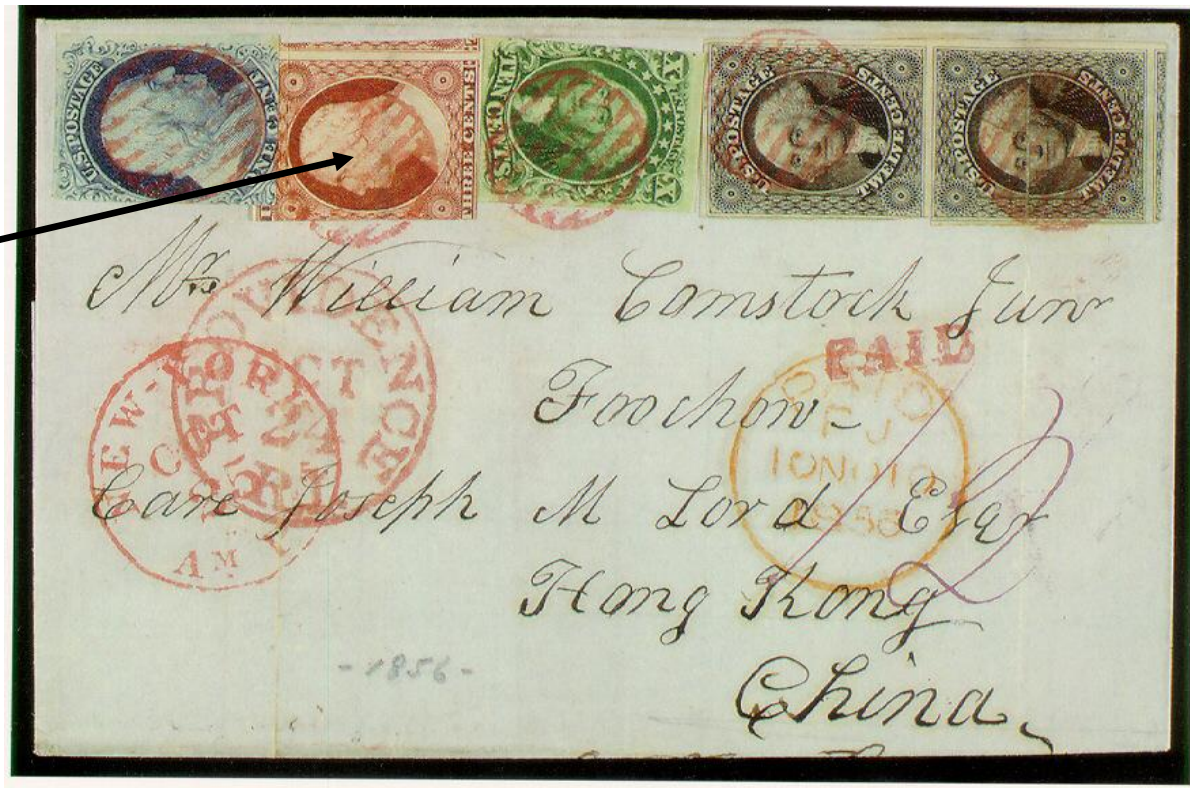 U.S. POSTAGE
THREE CENTS
TEN CENTS
X
X
U.S. POSTAGE
TWELVE CENTS
U.S. POSTAGE
TWELVE CENTS
Mrs William Comstock Junr
Foochow
Care Joseph M Lord Esqr
Hong Kong
China
PROVIDENCE
OCT
NEW-YORK
OCT
AM
PAID
PAID
10 NO 10
1856
12
-1856-